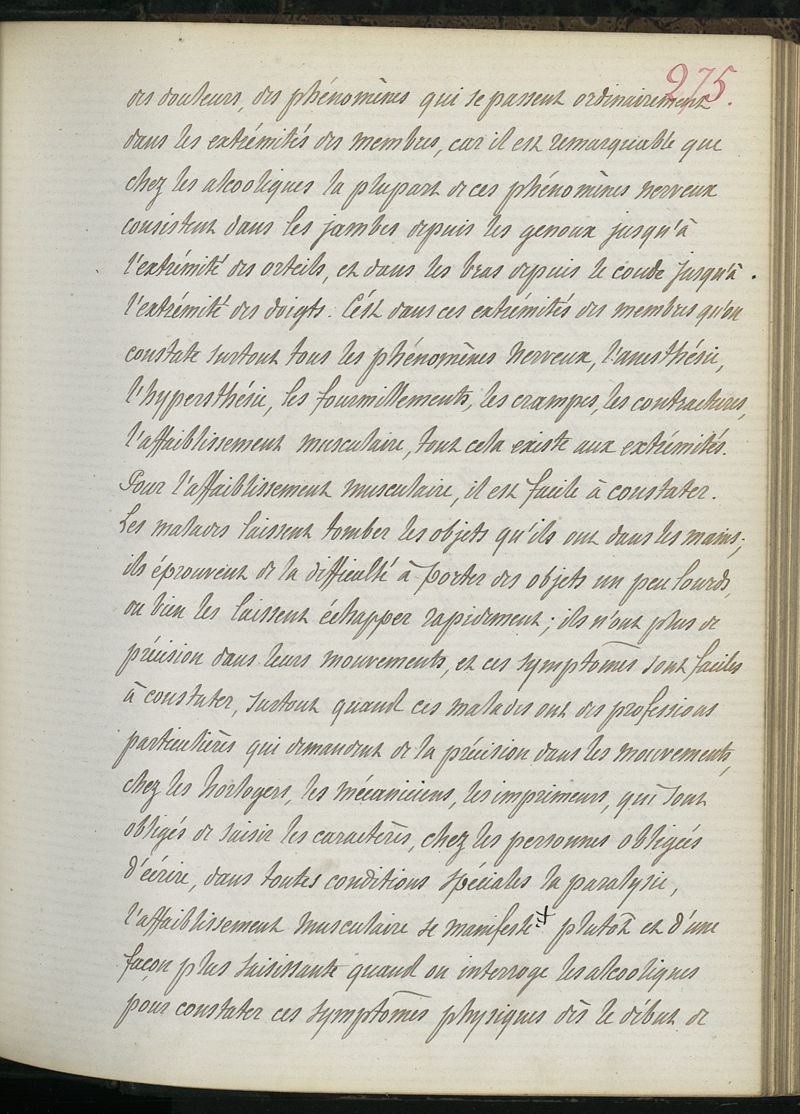 275.
des douleurs, des phénomènes qui se passent ordinairement
dans les extrémités des membres, car il est remarquable que
chez les alcooliques la plupart de ces phénomènes nerveux
consistent dans les jambes depuis les genoux jusqu'à
l'extrémité des orteils, et dans les bras depuis le coude jusqu'à
l'extrémité des doigts. C'est dans ces extrémités des membres qu'on
constate surtout tous les phénomènes nerveux, l'anesthésie,
l'hypersthésie, les fourmillements, les crampes, les contractures,
l'affaiblissement musculaire, tout cela existe aux extrémités.
Pour l'affaiblissement musculaire, il est facile à constater.
Les malades laissent tomber les objets qu'ils ont dans les mains;
ils éprouvent de la difficulté à porter des objets un peu lourds,
ou bien les laissent échapper rapidement; ils n'ont plus de
précision dans leurs mouvements, et ces symptômes sont faciles
à constater, surtout quand ces malades ont des professions
particulières qui demandent de la précision dans les mouvements,
chez les horlogers, les mécaniciens, les imprimeurs, qui sont
obligés de saisir les caractères, chez les personnes obligées
d'écrire, dans toutes conditions spéciales la paralysie,
l'affaiblissement musculaire se manifeste plutôt et d'une
façon plus saisissante quand on interroge les alcooliques
pour constater ces symptômes physiques dès le début de